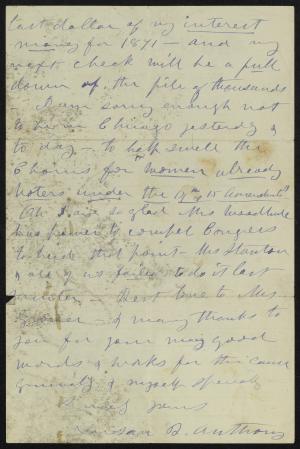 last dollar of my interest
money for 1871 - and my
next check will be a pull
down of the pile of thousands
I am sorry enough not
to be in Chicago yesterday &
to day - to help swell the
Chorus for women already
voters under the 14th & 15 Amendmts
Oh I am so glad Mrs Woodhull
has power to compel Congress
to heed that point - Mrs Stanton
& all of us failed to do it last
winter - Best love to Mrs
& many thanks to
you for your many good
words & works for the cause
generally & myself specially
Sincerely yours
Susan B. Anthony